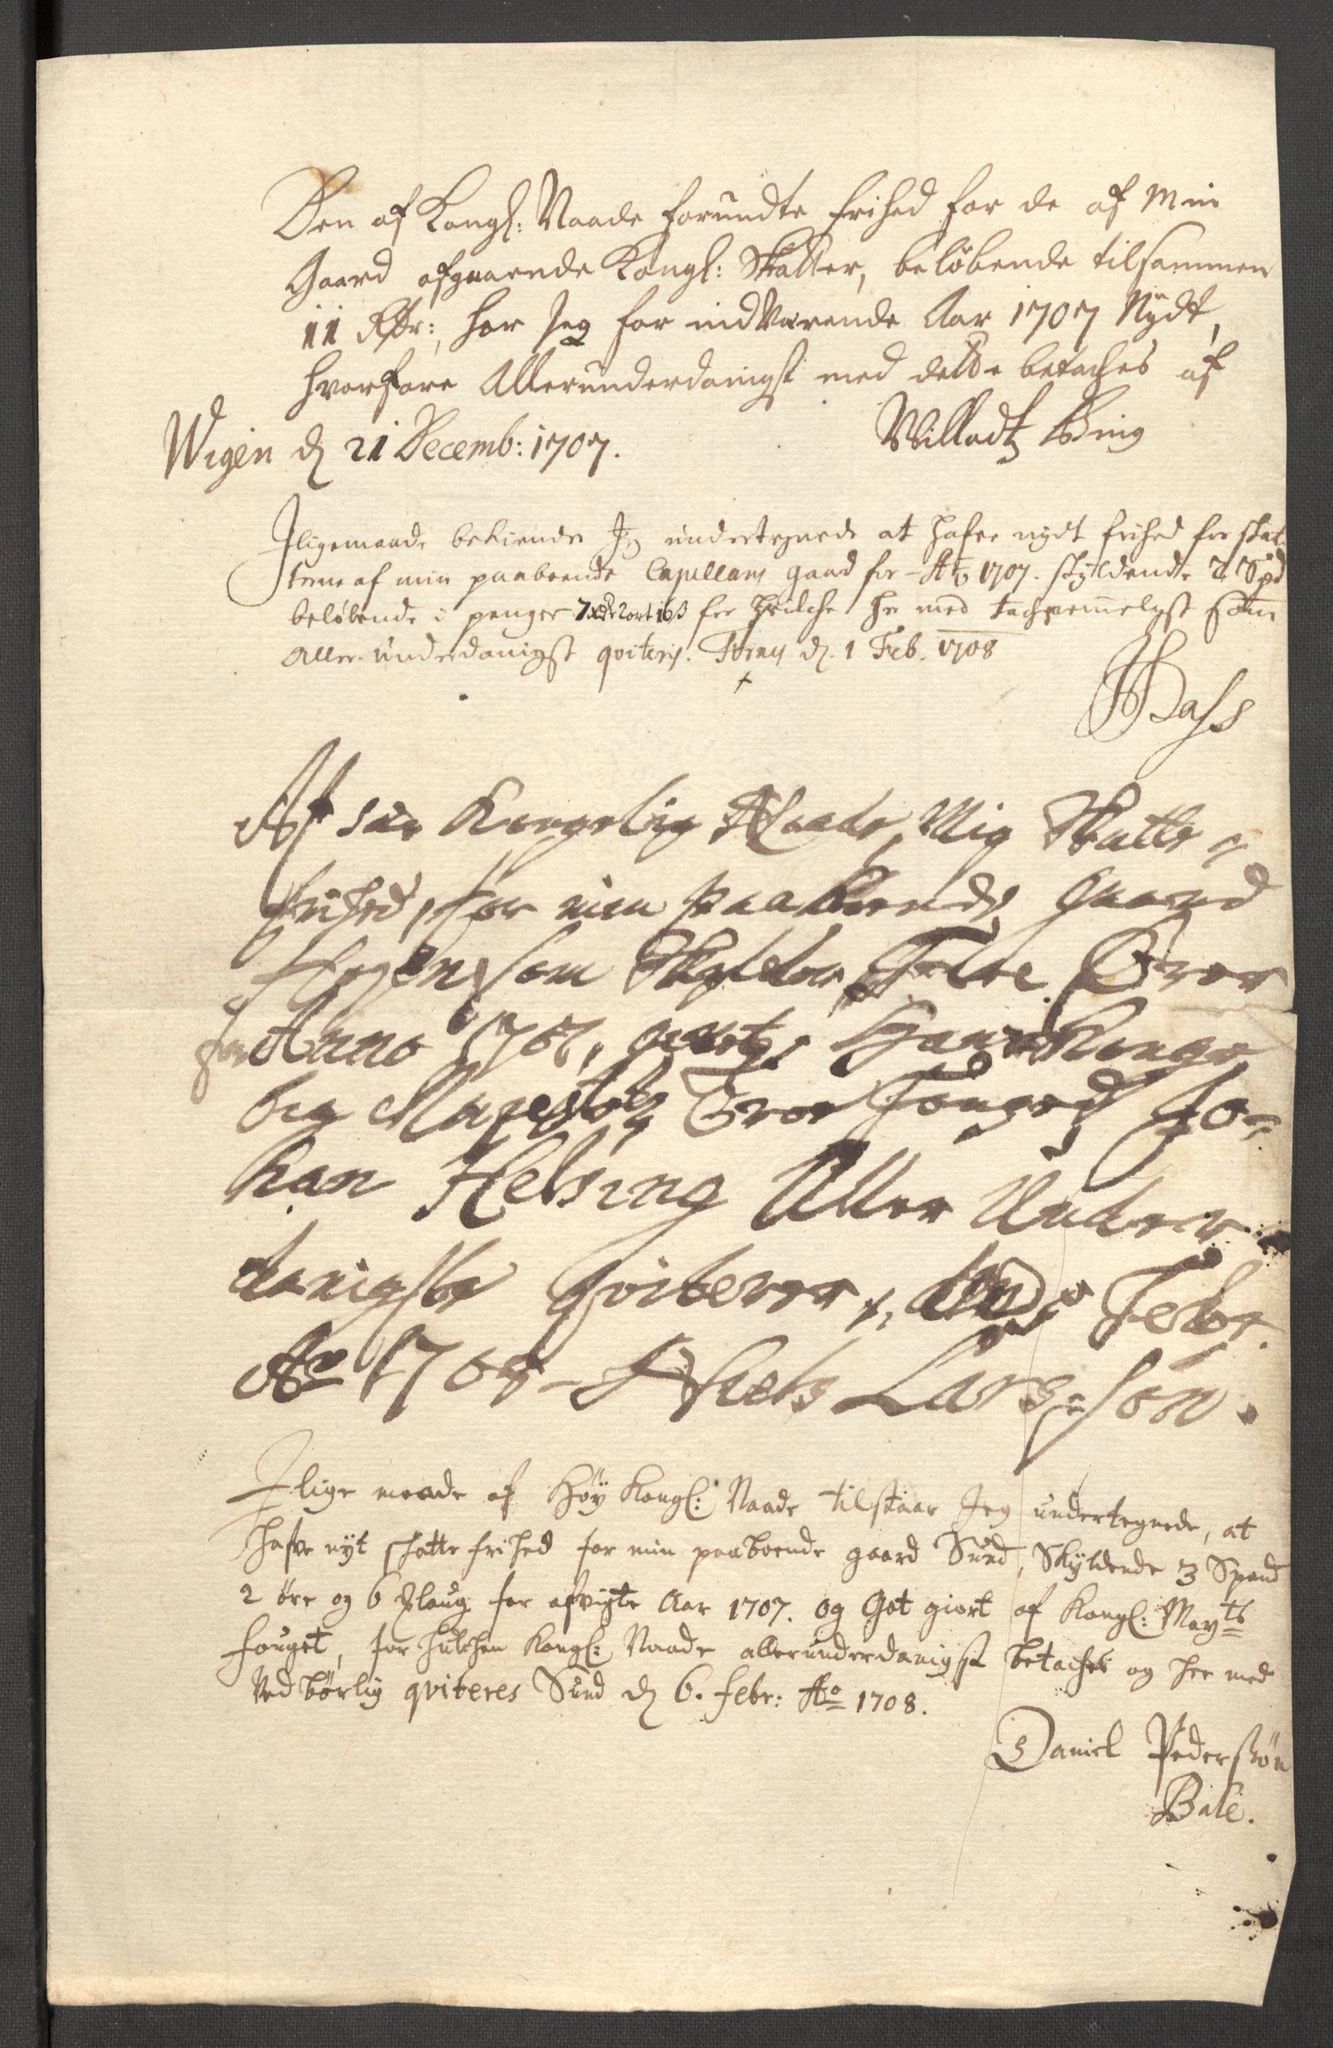 Den af Kongl: Naade forundte frihed for de af Min
Gaard afgaaende Kongl: Skatter, beløbende tilsammen
11 Rdr:, har Jeg for indværende Aar 1707 Nÿdt,
hvorfore Allerunderdanigst med dette betaches af
Wigen d 21 Decemb: 1707. Willadtz Bing
Iligemaade bekiender Jeg undertegnede at hafve nydt frihed for skat-
terne af min paaboende Capellans gaard for Ao 1707. skyldende 2 Spd
beløbende i penger 7 ort 16 s for hvilche her med tachnemmeligst som
Aller-underdanigst qviteris. d. 1 Feb. 1708
Dass
Af Kongelig Naade, Mig Skatte
frihed, for min paaboende gaard
som Skylder Øre
for Anno 1707, Hans Konge
lig Majestetz Fouged Jo-
han Helsing Aller Under
danigste Qviterer, Febr.
Ao 1708 Niels Lars-søn.
Ilige maade af Høy Kongl: Naade tilstaar Jeg undertegnede, at
hafve nÿt schatte frihed for min paaboende gaard Sund, Skÿldende 3 Spand
2 øre og 6 for afvigte Aar 1707. og Got giort af Kongl: Mayts
fouget, for huilchen Kongl: Naade allerunderdanigst betaches og her med
Ved børlig qviteres Sund d 6. febr: Ao 1708.
Daniel Pederssøn
Bale.